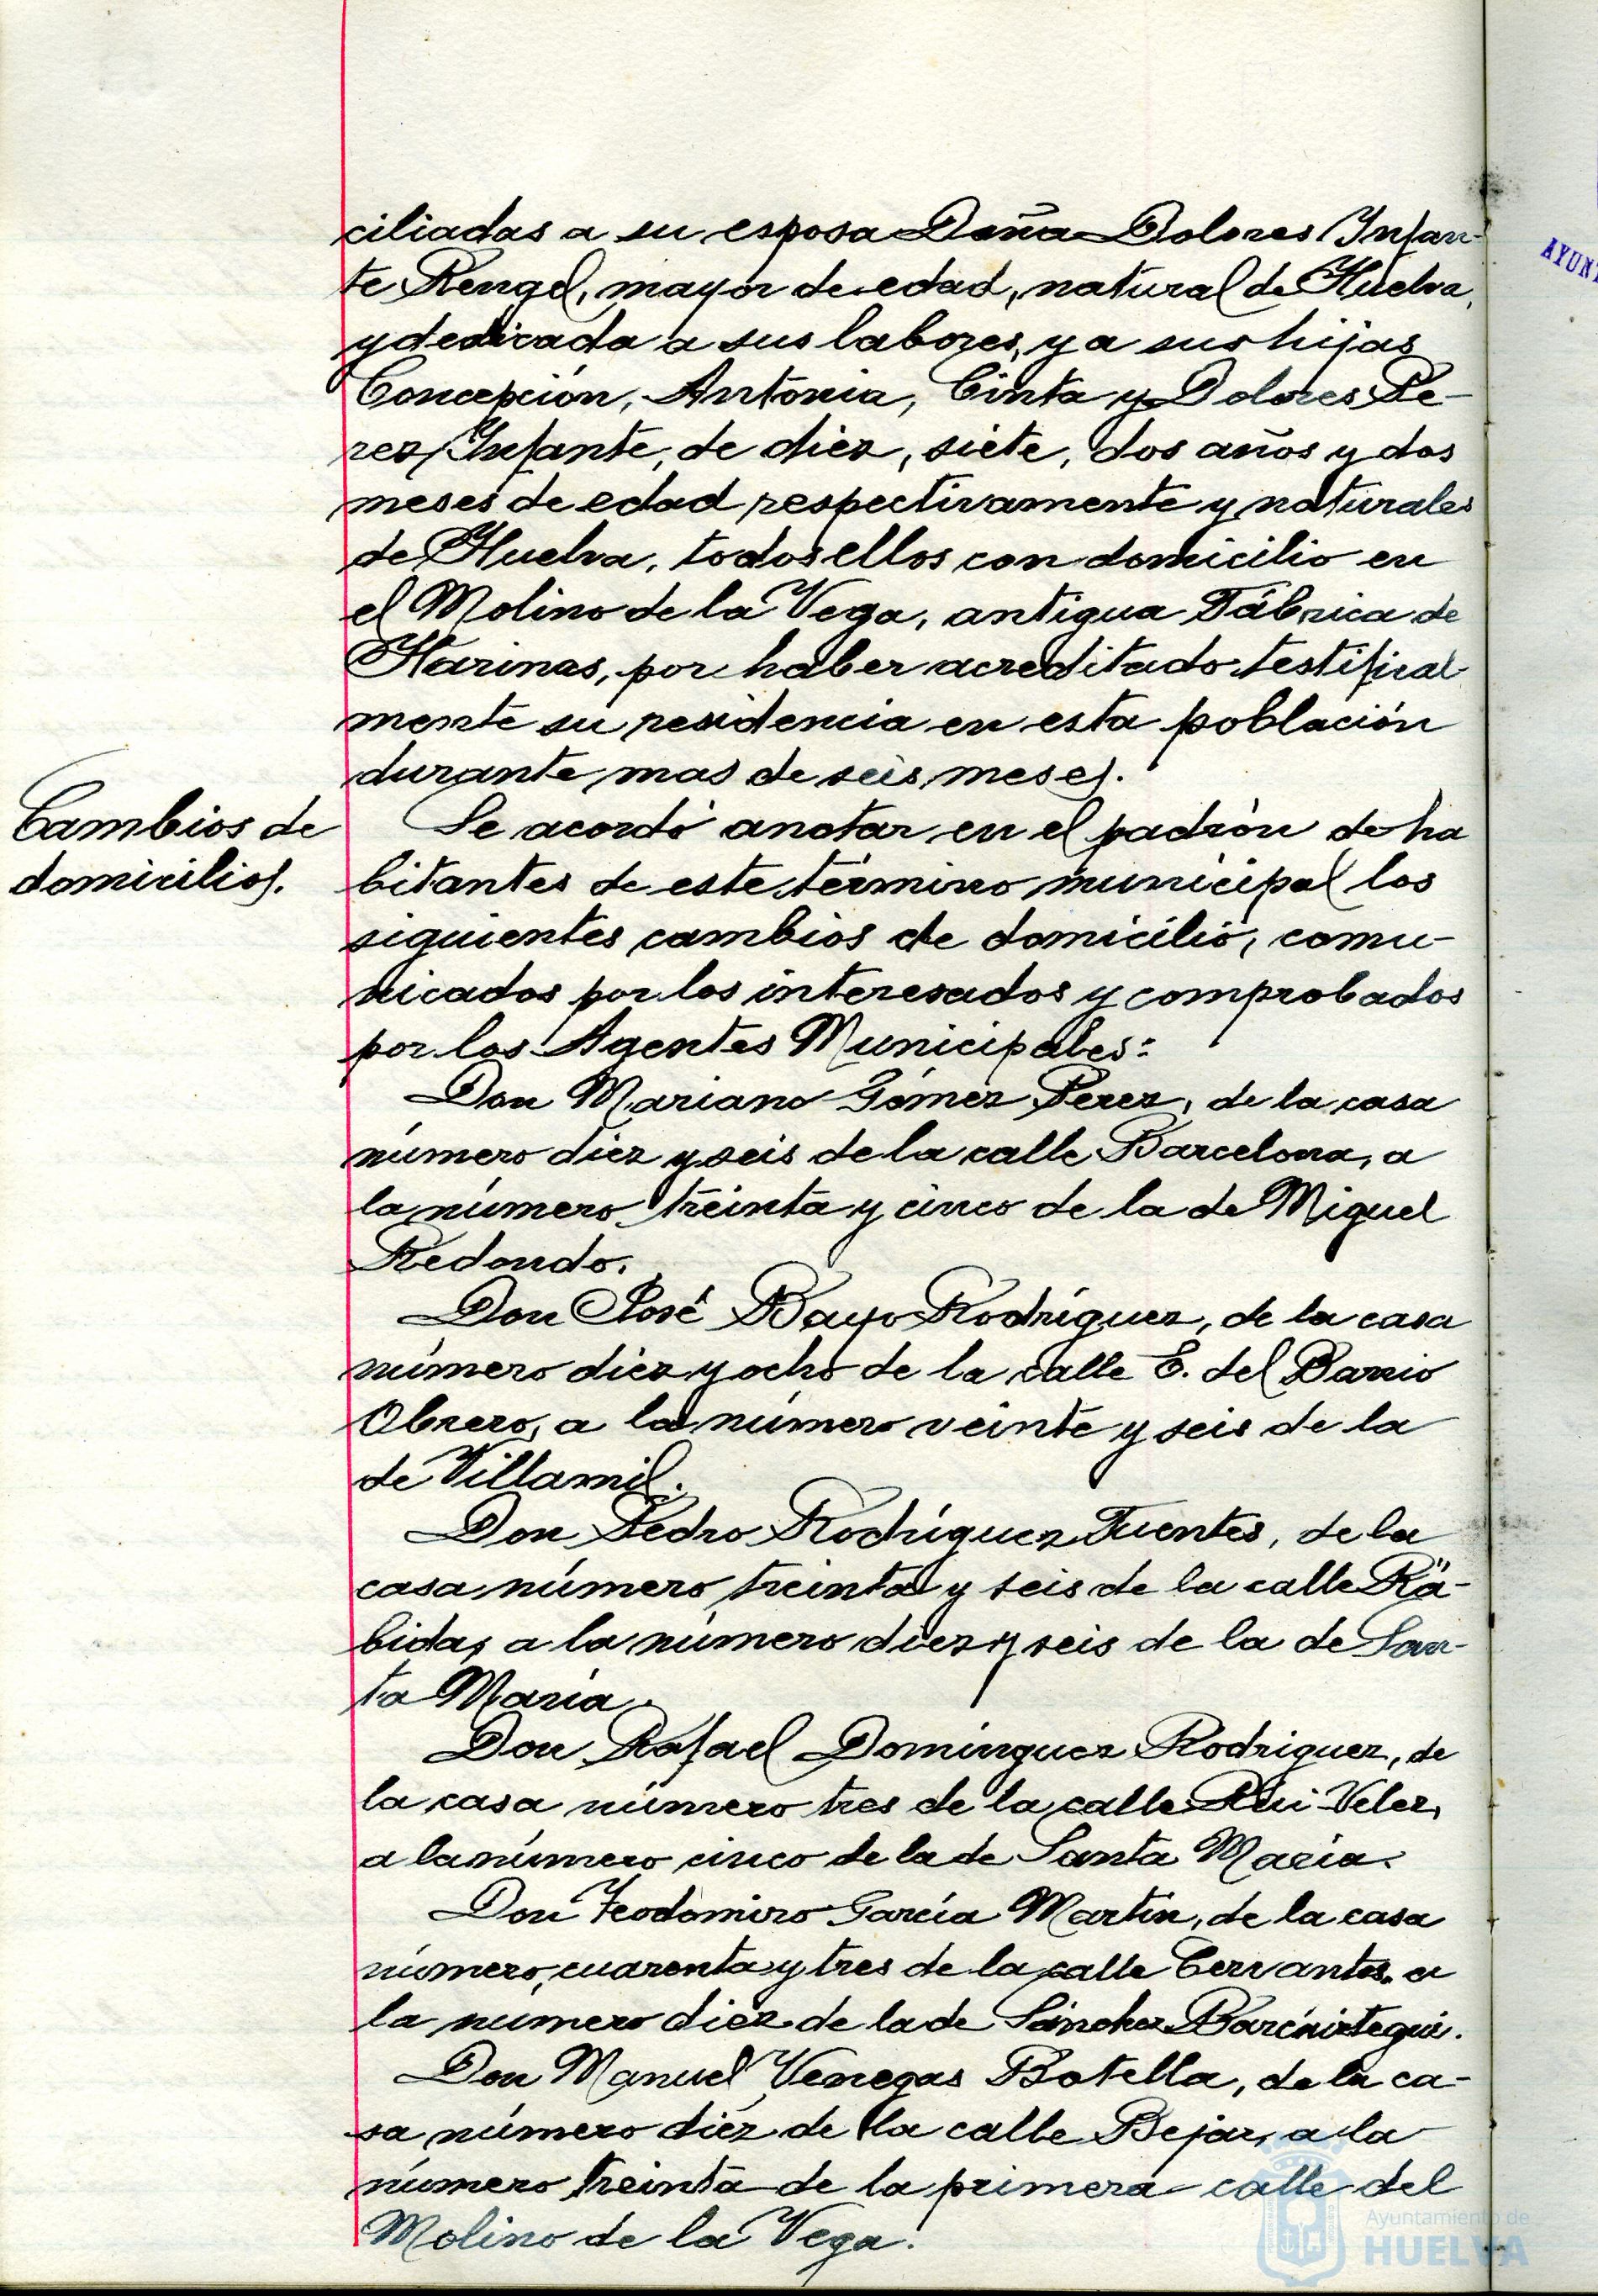 ciliadas a su esposa Doña Dolores Infan-
te Rengel, mayor de edad, natural de Huelva,
y dedicada a sus labores, y a sus hijas
Concepción, Antonia, Cinta y Dolores Pe-
rez Infante, de diez, siete, dos años y dos
meses de edad respectivamente y naturales
de Huelva, todos ellos con domicilio en
el Molino de la Vega, antigua Fábrica de
Harinas, por haber acreditado testifical
mente su residencia en esta población
durante mas de seis meses.
Cambios de
domicilios.
Se acordó anotar en el padrón de ha
bitantes de este término municipal los
siguientes cambios de domicilio, comu-
nicados por los interesados y comprobados
por los Agentes Municipales:
Don Mariano Gómez Perez, de la casa
número diez y seis de la calle Barcelona, a
la número treinta y cinco de la de Miguel
Redondo.
Don José Bayo Rodríguez, de la casa
número diez y ocho de la calle E. del Barrio
Obrero, a la número veinte y seis de la
de Villamil.
Don Pedro Rodríguez Fuentes, de la
casa número treinta y seis de la calle Rá-
bida, a la número diez y seis de la de San-
ta María.
Don Rafael Domínguez Rodriguez, de
la casa número tres de la calle Rui-Velez,
a la número cinco de la de Santa María.
Don Teodomiro García Martín, de la casa
número cuarenta y tres de la calle Cervantes, a
la número diez de la de Sánchez Barcáiztegui.
Don Manuel Venegas Botella, de la ca-
sa número diez de la calle Bejar, a la
número treinta de la primera calle del
Molino de la Vega.
AYUN
Ayuntamiento de
HUELVA